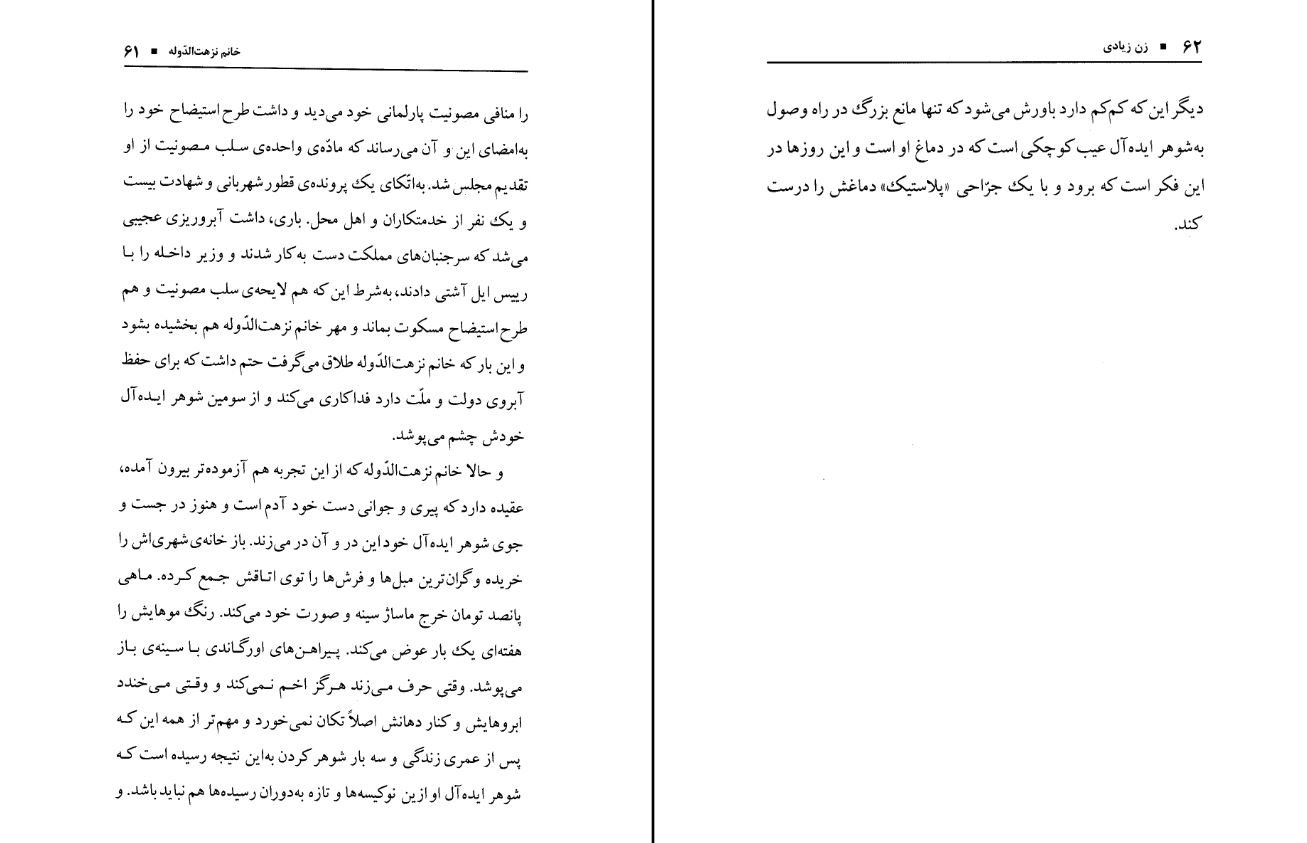 خانم نزهت‌الدّوله ■ ۶۱
را منافی مصونیت پارلمانی خود می‌دید و داشت طرح استیضاح خود را
به‌امضای این و آن می‌رساند که مادّه‌ی واحده‌ی سلب مصونیت از او
تقدیم مجلس شد. به‌اتّکای یک پرونده‌ی قطور شهربانی و شهادت بیست
و یک نفر از خدمتکاران و اهل محل. باری، داشت آبروریزی عجیبی
می‌شد که سرجنبان‌های مملکت دست به‌کار شدند و وزیر داخله را با
رییس ایل آشتی دادند، به‌شرط این‌که هم لایحه‌ی سلب مصونیت و هم
طرح استیضاح مسکوت بماند و مهر خانم نزهت‌الدّوله هم بخشیده بشود
و این بار که خانم نزهت‌الدّوله طلاق می‌گرفت حتم داشت که برای حفظ
آبروی دولت و ملّت دارد فداکاری می‌کند و از سومین شوهر ایده‌آل
خودش چشم می‌پوشد.
و حالا خانم نزهت‌الدّوله که از این تجربه هم آزموده‌تر بیرون آمده،
عقیده دارد که پیری و جوانی دست خود آدم است و هنوز در جست و
جوی شوهر ایده‌آل خود این در و آن در می‌زند. باز خانه‌ی شهری‌اش را
خریده و گران‌ترین مبل‌ها و فرش‌ها را توی اتاقش جمع کرده. ماهی
پانصد تومان خرج ماساژ سینه و صورت خود می‌کند. رنگ موهایش را
هفته‌ای یک بار عوض می‌کند. پیراهن‌های اورگاندی با سینه‌ی باز
می‌پوشد. وقتی حرف می‌زند هرگز اخم نمی‌کند و وقتی می‌خندد
ابروهایش و کنار دهانش اصلاً تکان نمی‌خورد و مهم‌تر از همه این که
پس از عمری زندگی و سه بار شوهر کردن به‌این نتیجه رسیده است که
شوهر ایده‌آل او ازین نوکیسه‌ها و تازه به‌دوران رسیده‌ها هم نباید باشد. و
۶۲ ■ زن زیادی
دیگر این‌که کم‌کم دارد باورش می‌شود که تنها مانع بزرگ در راه وصول
به‌شوهر ایده‌آل عیب کوچکی است که در دماغ او است و این روزها در
این فکر است که برود و با یک جرّاحی «پلاستیک» دماغش را درست
کند.